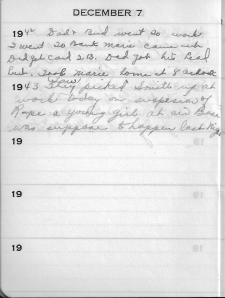 DECEMBER 7
1942 Dad & Bud went to work
I went to Bank Marie came with
Dad got card 2B. Dad got his Real
Took Marie home at 8 oclock
1943 They picked Smith up at
work today on suspicion of
Rape a young girl at air Base
was suppose to happen last
19
19
19